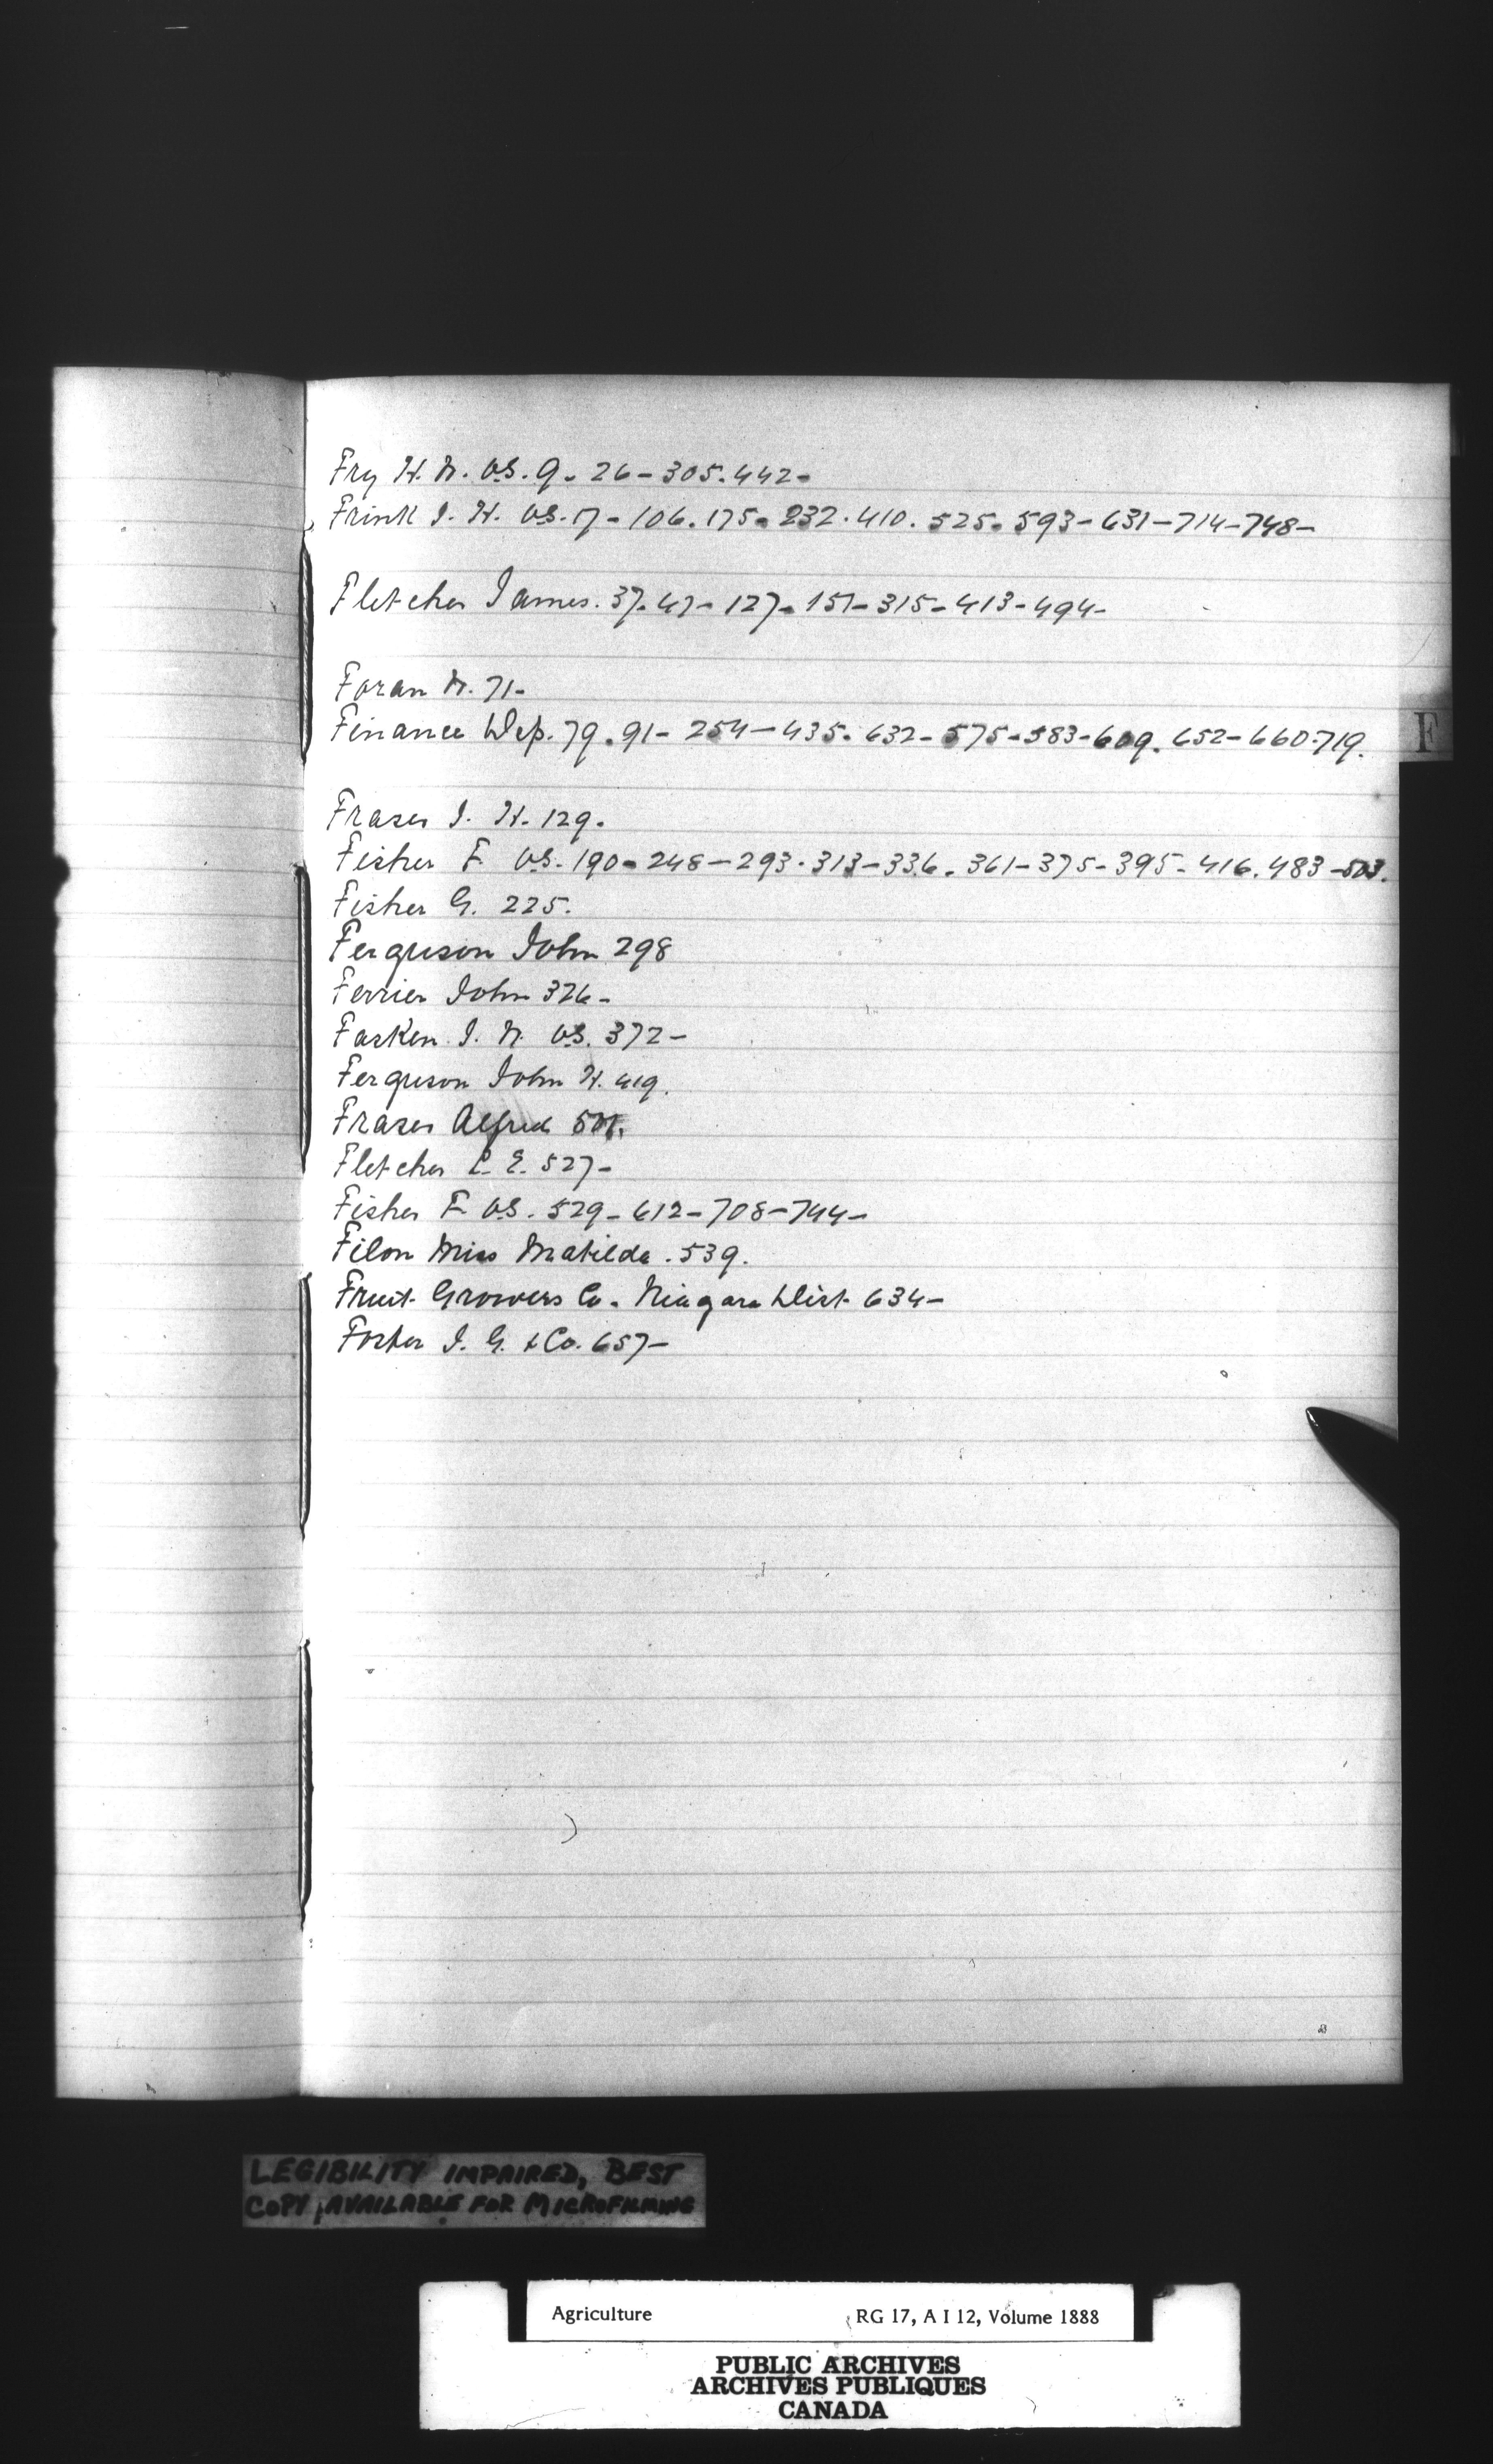 Fry H. N. VS. 9. 26-305.442-
Frink J. H. VS. 17-106.175-232.410.525.593-631-714-748-
Fletcher James. 37.47-127-151-315-413-494-
Foran M. 71-
Finance Dep. 79.91-254-435.632-575-583-609.652-660.719.
F
Fraser J. H. 129.
Fisher F. VS. 190-248-293.313-336.361-375-395-416.483-503.
Fisher G. 225.
Ferguson John 298
Ferrier John 326-
Fasken J. N. VS. 372-
Ferguson John H. 419.
Fraser Alfred
Fletcher C. E. 527-
Fisher F. VS. 529-612-708-744-
Filon Miss Matilda. 539.
Fruit Growers Co. Niagara Dist. 634-
Foster J. G. & Co. 657-
LEGIBILITY IMPAIRED, BEST
COPY AVAILABLE FOR MICROFILMING
Agriculture RG 17, A I 12, Volume 1888
PUBLIC ARCHIVES
ARCHIVES PUBLIQUES
CANADA